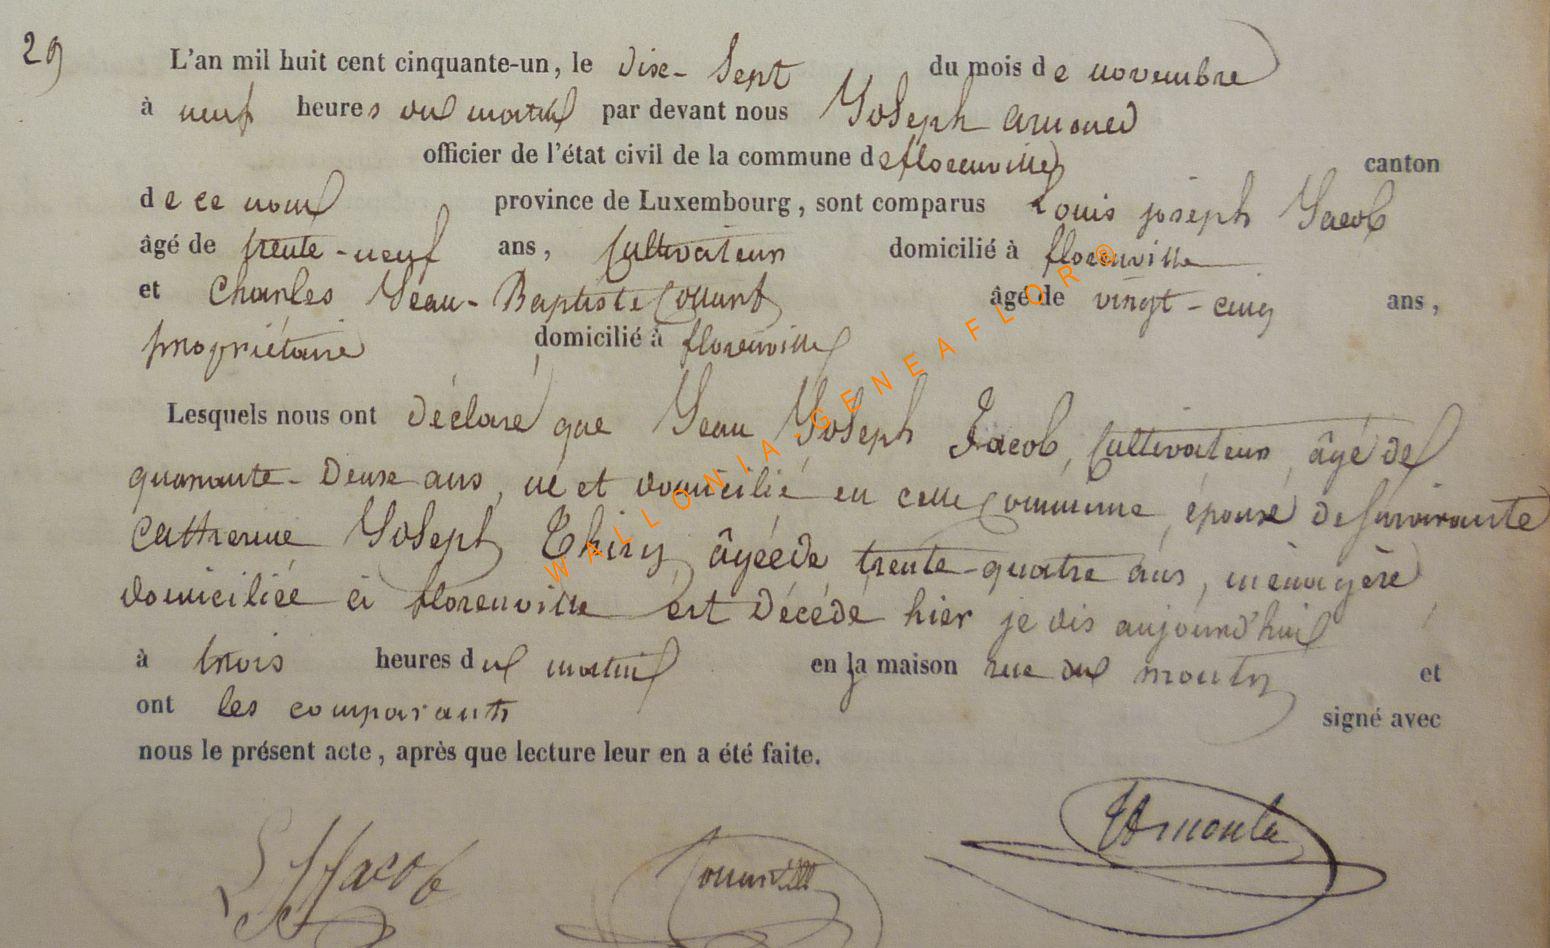 29
L'an mil huit cent cinquante-un, le dix-sept du mois de novembre
à neuf heures du matin par devant nous Joseph
officier de l'état civil de la commune de florenville canton
de ce nom province de Luxembourg, sont comparus Louis joseph Jacob
âgé de trente-neuf ans, Cultivateur domicilié à florenville
et Charles Jean-Baptiste âgé de vingt-cinq ans,
propriétaire domicilié à florenville
Lesquels nous ont déclaré que Jean Joseph Jacob, Cultivateur, âgé de
quarante-deux ans, né et domicilié en cette Commune, époux de survivante
Catherine Joseph Thiry âgée de trente-quatre ans, ménagère
domiciliée à florenville est décédé hier je dis aujourd'hui
à trois heures du matin en sa maison rue du et
ont les comparants signé avec
nous le présent acte, après que lecture leur en a été faite.
Jacob
WALLONIA-GENEAFLOR©